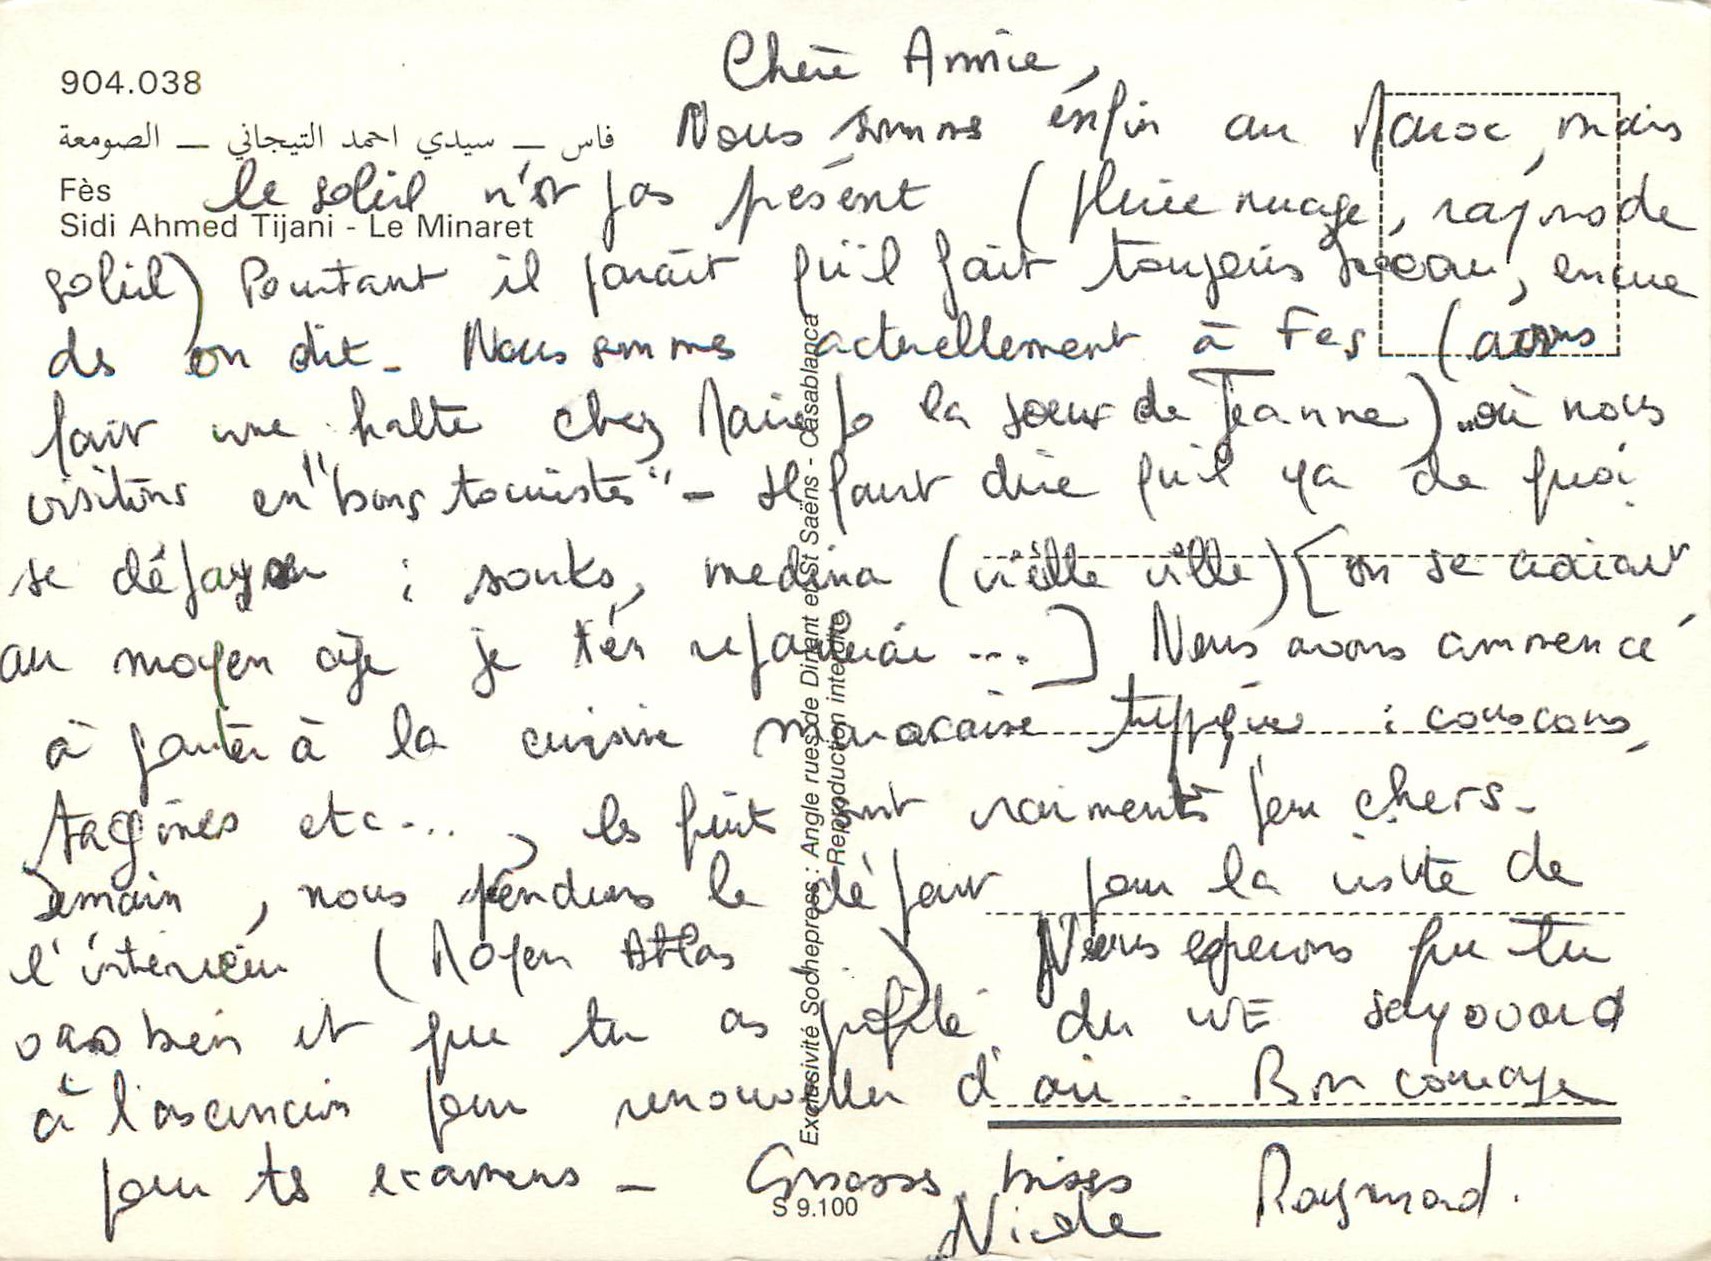 904.038
فاس — سيدي احمد التيجاني — الصومعة
Fès
Sidi Ahmed Tijani - Le Minaret
Chère Annie,
Nous sommes enfin au Maroc, mais
le soleil n'est pas présent (pluie nuage, rayons de
soleil) Pourtant il paraît qu'il fait toujours beau, encore
des on dit - Nous sommes actuellement à Fes (avons
fait une halte chez Marie Jo la soeur de Jeanne) où nous
visitons en "bons touristes" - Il faut dire qu'il y a de quoi
se dépayser : souks, medina (vieille ville) [on se croirait
au moyen age je t'en reparlerai ...] Nous avons commencé
à gouter à la cuisine marocaine typique : couscous,
tagines etc..., les fruits sont vraiment peu chers -
Demain, nous prendrons le départ pour la visite de
l'intérieur (Moyen Atlas ..) Nous esperons que tu
vas bien et que tu as profité du WE
à l'ascension pour renouveller d'air. Bon courage
pour tes examens - Grosses bises
Nicole Raymond.
Exclusivité Sochepress : Angle rues de Dinant et St Saëns - Casablanca
Reproduction interdite
S 9.100